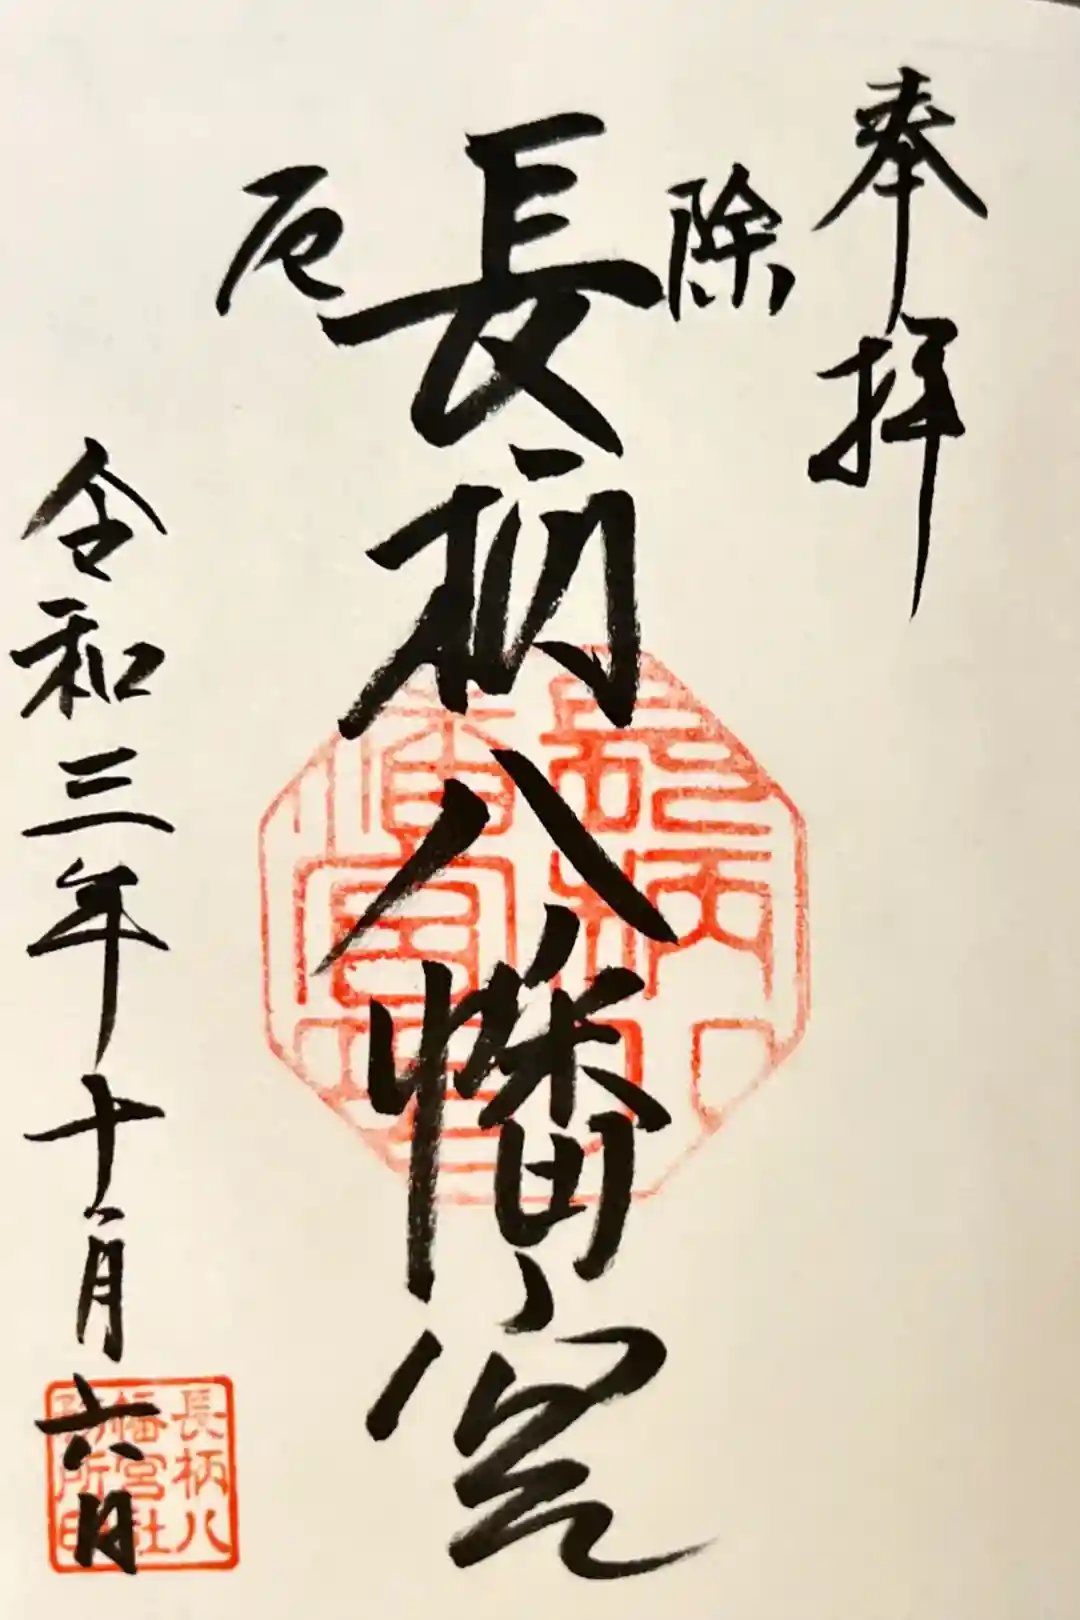 奉拝
除
長柄八幡宮
厄
令和三年十月六日
長柄八
幡宮社
務所印